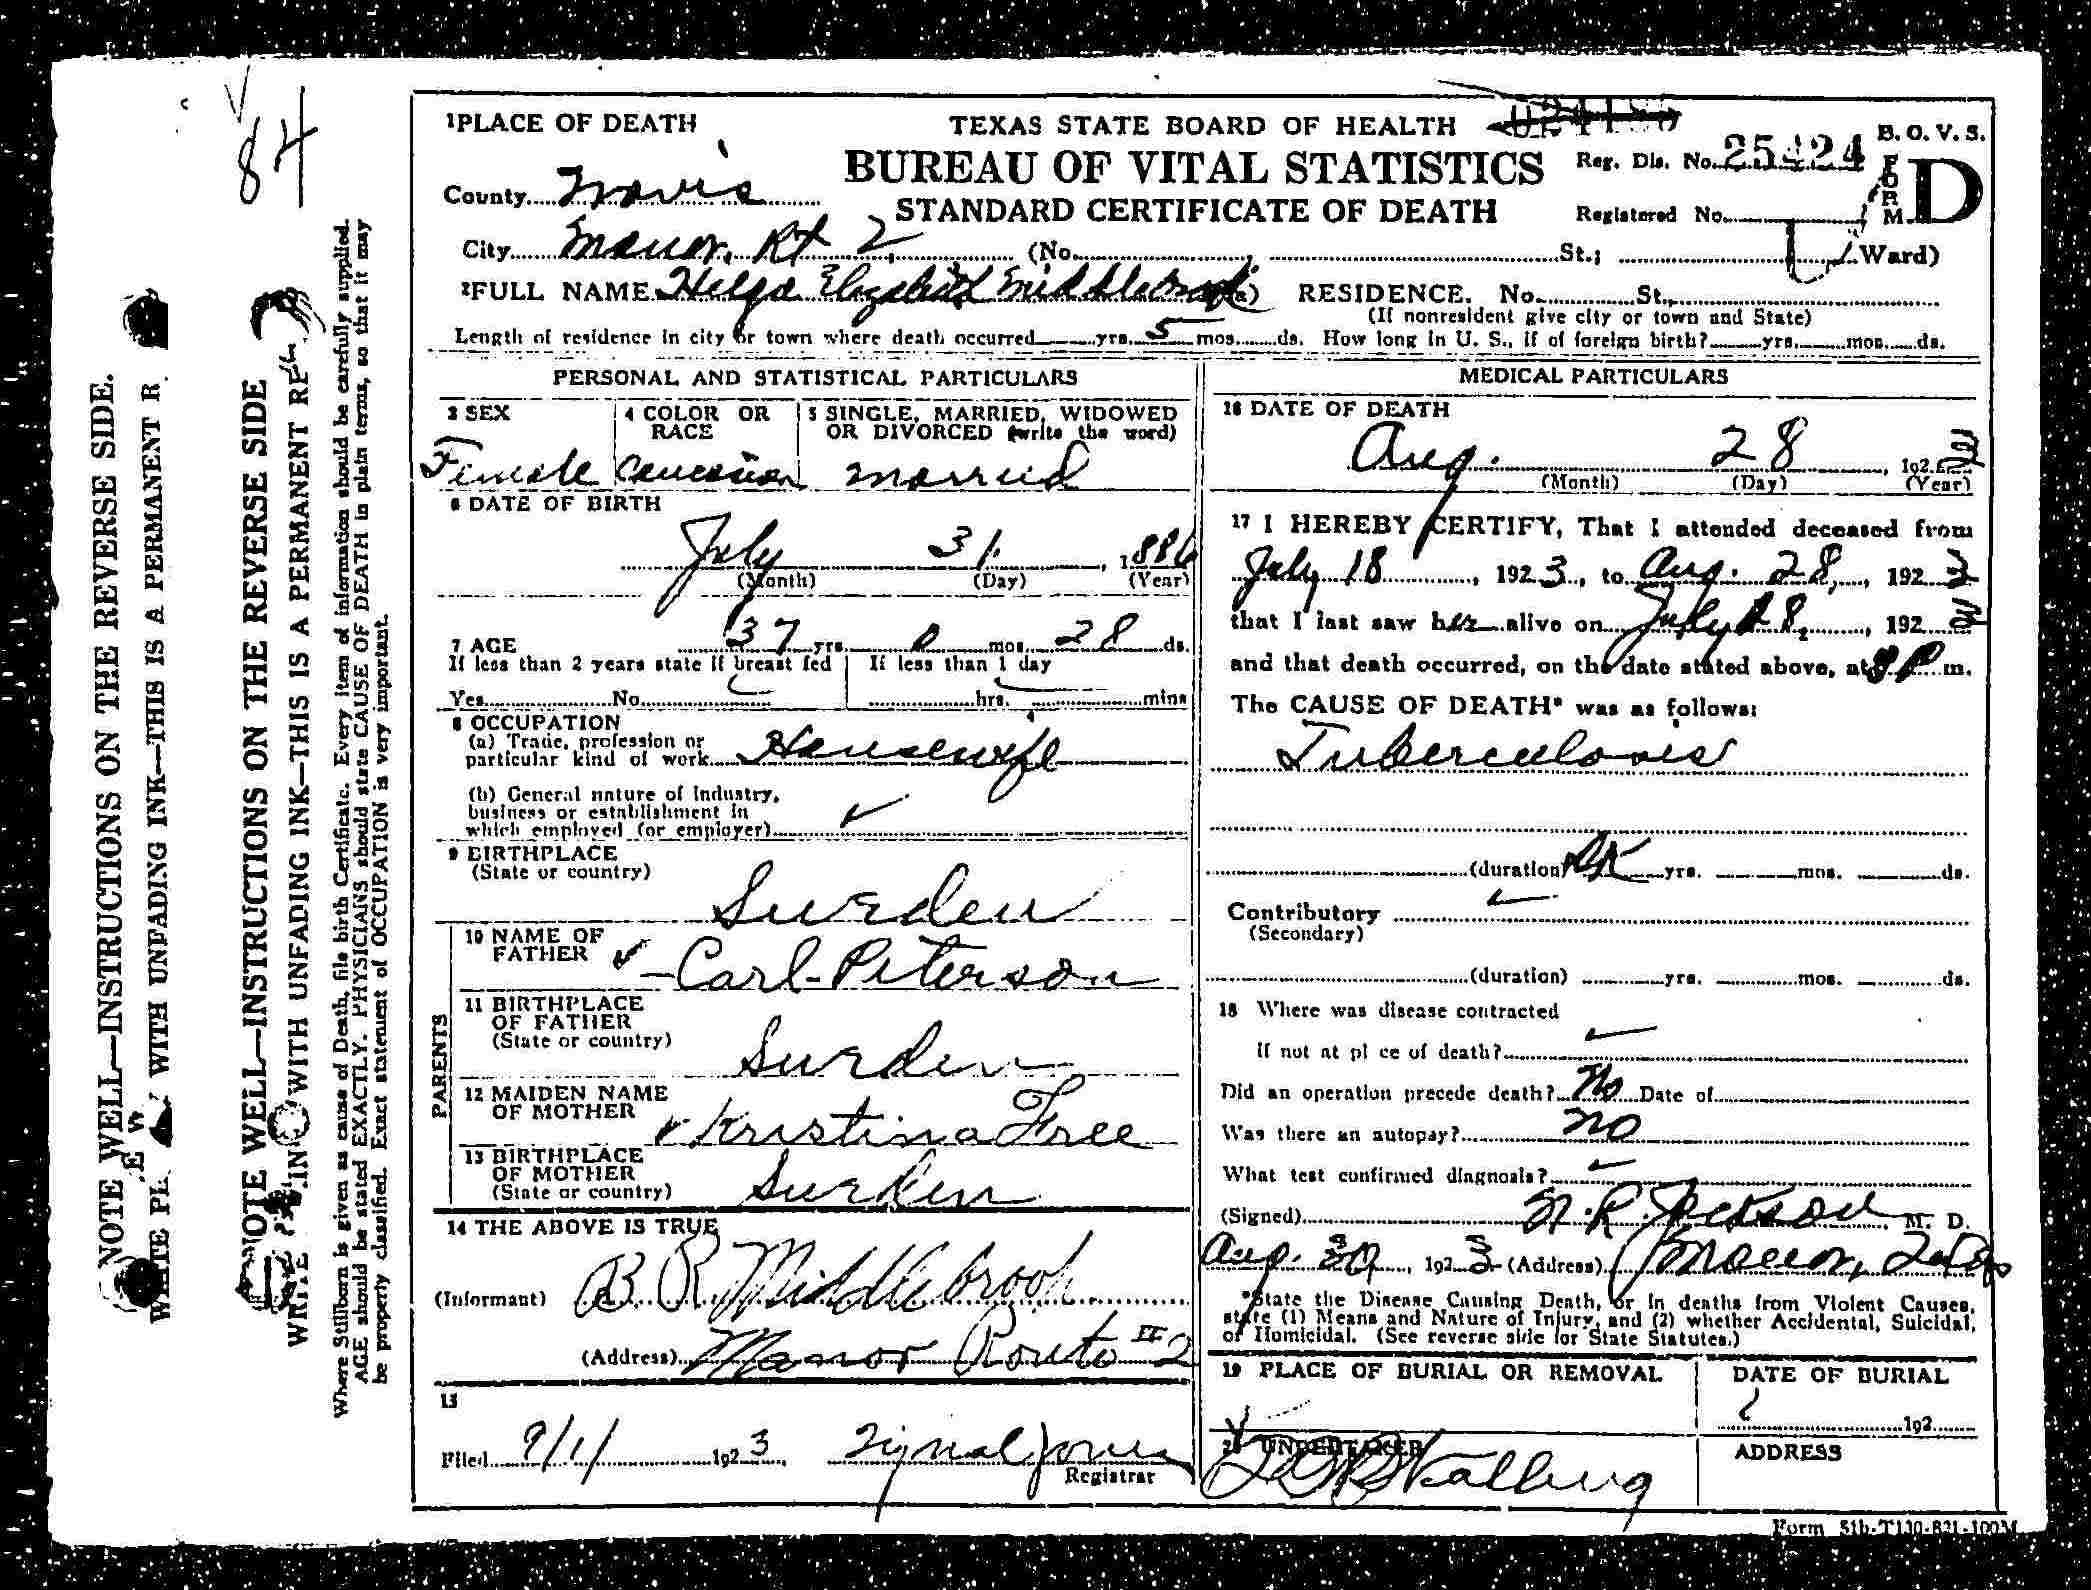 84
1 PLACE OF DEATH
TEXAS STATE BOARD OF HEALTH
BUREAU OF VITAL STATISTICS
STANDARD CERTIFICATE OF DEATH
B. O. V. S.
FORM D
Reg. Dis. No. 25424
Registered No.
County Travis
City Manor, Rt 2 (No. St.; Ward)
2 FULL NAME Helga Elizabeth Middlebrook (a) RESIDENCE. No. St.,
(If nonresident give city or town and State)
Length of residence in city or town where death occurred yrs. 5 mos. ds. How long in U. S., if of foreign birth? yrs. mos. ds.
PERSONAL AND STATISTICAL PARTICULARS
3 SEX
Female
4 COLOR OR RACE
Caucasian
5 SINGLE, MARRIED, WIDOWED OR DIVORCED (write the word)
married
6 DATE OF BIRTH
July 31, 1886
(Month) (Day) (Year)
7 AGE 37 yrs. 0 mos. 28 ds.
If less than 2 years state if breast fed
If less than 1 day
Yes No
hrs. mins
8 OCCUPATION
(a) Trade, profession or
particular kind of work Housewife
(b) General nature of Industry,
business or establishment in
which employed (or employer)
9 BIRTHPLACE
(State or country)
Sweden
PARENTS
10 NAME OF
FATHER Carl Peterson
11 BIRTHPLACE
OF FATHER
(State or country) Sweden
12 MAIDEN NAME
OF MOTHER Kristina Free
13 BIRTHPLACE
OF MOTHER
(State or country) Sweden
14 THE ABOVE IS TRUE
(Informant) B R Middlebrook
(Address) Manor Route # 2
15
Filed 9/1/ 1923 Signal Jones
Registrar
MEDICAL PARTICULARS
16 DATE OF DEATH
Aug. 28, 1923
(Month) (Day) (Year)
17 I HEREBY CERTIFY, That I attended deceased from
July 18, 1923, to Aug. 28, 1923
that I last saw her alive on July 18, 1923
and that death occurred, on the date stated above, at 8 P m.
The CAUSE OF DEATH* was as follows:
Tuberculosis
(duration) DK yrs. mos. ds.
Contributory
(Secondary)
(duration) yrs. mos. ds.
18 Where was disease contracted
If not at pl ce of death?
Did an operation precede death? No Date of
Was there an autopsy? no
What test confirmed diagnosis?
(Signed) Jackson, M. D.
Aug. 30, 1923 (Address) Manor, Texas
*State the Disease Causing Death, or in deaths from Violent Causes,
state (1) Means and Nature of Injury, and (2) whether Accidental, Suicidal,
or Homicidal. (See reverse side for State Statutes.)
19 PLACE OF BURIAL OR REMOVAL
DATE OF BURIAL
192
20 UNDERTAKER
ADDRESS
Form 51b-T130-821-100M
NOTE WELL—INSTRUCTIONS ON THE REVERSE SIDE.
WITH UNFADING INK—THIS IS A PERMANENT R
NOTE WELL—INSTRUCTIONS ON THE REVERSE SIDE
WITH UNFADING INK—THIS IS A PERMANENT RE
Where Stillborn is given as cause of Death, file birth Certificate. Every item of information should be carefully supplied.
AGE should be stated EXACTLY. PHYSICIANS should state CAUSE OF DEATH in plain terms, so that it may
be properly classified. Exact statement of OCCUPATION is very important.